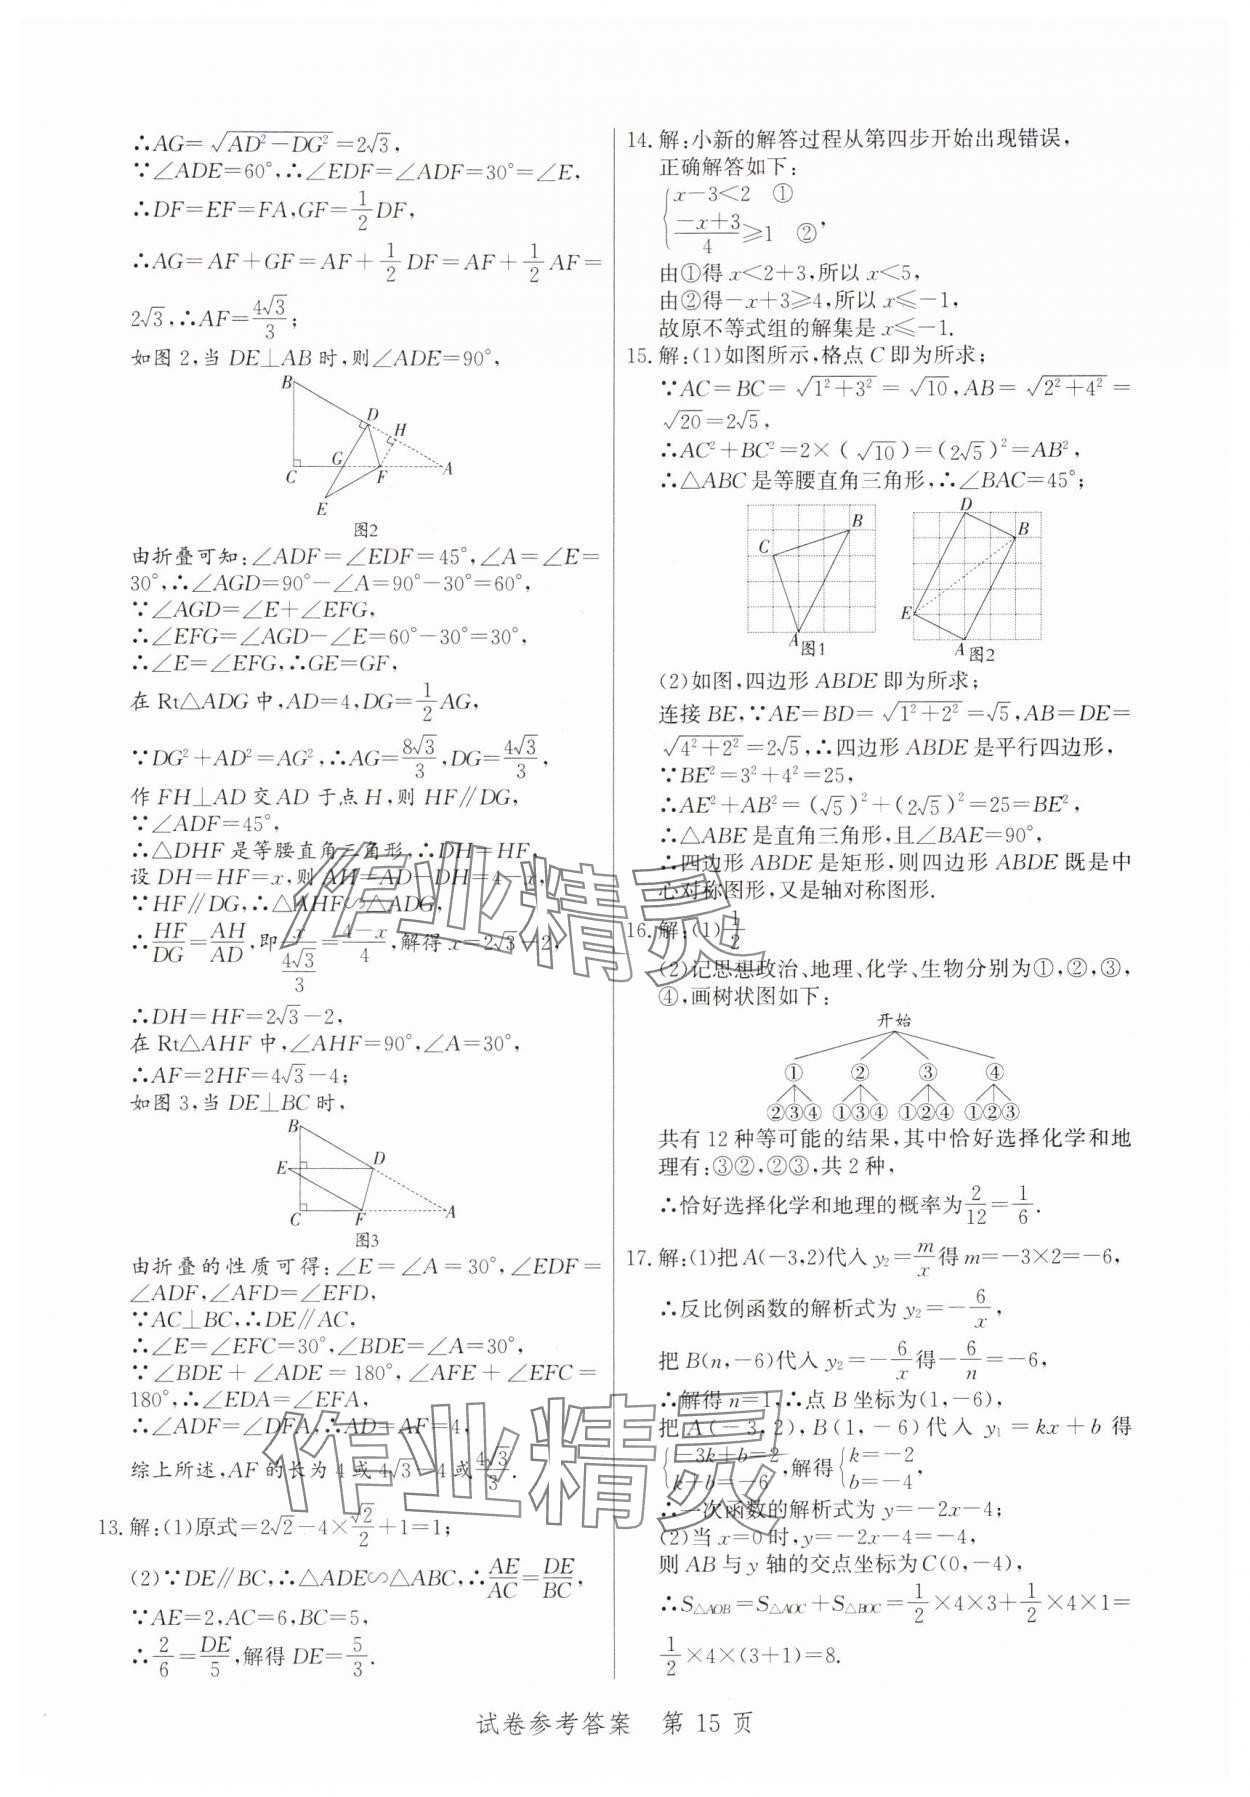 ∴AG=√(AD²-DG²)=2√3,
∵∠ADE=60°,∴∠EDF=∠ADF=30°=∠E,
∴DF=EF=FA,GF=1/2 DF,
∴AG=AF+GF=AF+1/2 DF=AF+1/2 AF=
2√3,∴AF=4√3/3;
如图2,当DE⊥AB时,则∠ADE=90°,
B
D
H
G
C
F
A
E
图2
由折叠可知:∠ADF=∠EDF=45°,∠A=∠E=
30°,∴∠AGD=90°-∠A=90°-30°=60°,
∵∠AGD=∠E+∠EFG,
∴∠EFG=∠AGD-∠E=60°-30°=30°,
∴∠E=∠EFG,∴GE=GF,
在Rt△ADG中,AD=4,DG=1/2 AG,
∵DG²+AD²=AG²,∴AG=8√3/3,DG=4√3/3,
作FH⊥AD交AD于点H,则HF∥DG,
∵∠ADF=45°,
∴△DHF是等腰直角三角形,∴DH=HF,
设DH=HF=x,则AH=AD-DH=4-x,
∵HF∥DG,∴△AHF∽△ADG,
∴HF/DG=AH/AD,即x/(4√3/3)=(4-x)/4,解得x=2√3-2,
∴DH=HF=2√3-2,
在Rt△AHF中,∠AHF=90°,∠A=30°,
∴AF=2HF=4√3-4;
如图3,当DE⊥BC时,
B
E
D
C
F
A
图3
由折叠的性质可得:∠E=∠A=30°,∠EDF=
∠ADF,∠AFD=∠EFD,
∵AC⊥BC,∴DE∥AC,
∴∠E=∠EFC=30°,∠BDE=∠A=30°,
∵∠BDE+∠ADE=180°,∠AFE+∠EFC=
180°,∴∠EDA=∠EFA,
∴∠ADF=∠DFA,∴AD=AF=4,
综上所述,AF的长为4或4√3-4或4√3/3.
13.解:(1)原式=2√2-4×√2/2+1=1;
(2)∵DE∥BC,∴△ADE∽△ABC,∴AE/AC=DE/BC,
∵AE=2,AC=6,BC=5,
∴2/6=DE/5,解得DE=5/3.
14.解:小新的解答过程从第四步开始出现错误,
正确解答如下:
{x-3<2 ①
(-x+3)/4≥1 ②,
由①得x<2+3,所以x<5,
由②得-x+3≥4,所以x≤-1,
故原不等式组的解集是x≤-1.
15.解:(1)如图所示,格点C即为所求;
∵AC=BC=√(1²+3²)=√10,AB=√(2²+4²)=
√20=2√5,
∴AC²+BC²=2×(√10)=(2√5)²=AB²,
∴△ABC是等腰直角三角形,∴∠BAC=45°;
B
C
A
图1
D
B
E
A
图2
(2)如图,四边形ABDE即为所求;
连接BE,∵AE=BD=√(1²+2²)=√5,AB=DE=
√(4²+2²)=2√5,∴四边形ABDE是平行四边形,
∵BE²=3²+4²=25,
∴AE²+AB²=(√5)²+(2√5)²=25=BE²,
∴△ABE是直角三角形,且∠BAE=90°,
∴四边形ABDE是矩形,则四边形ABDE既是中
心对称图形,又是轴对称图形.
16.解:(1)1/2
(2)记思想政治、地理、化学、生物分别为①,②,③,
④,画树状图如下:
开始
① ② ③ ④
②③④ ①③④ ①②④ ①②③
共有12种等可能的结果,其中恰好选择化学和地
理有:③②,②③,共2种,
∴恰好选择化学和地理的概率为2/12=1/6.
17.解:(1)把A(-3,2)代入y₂=m/x得m=-3×2=-6,
∴反比例函数的解析式为y₂=-6/x,
把B(n,-6)代入y₂=-6/x得-6/n=-6,
∴解得n=1,∴点B坐标为(1,-6),
把A(-3,2),B(1,-6)代入y₁=kx+b得
{-3k+b=2
k+b=-6,解得{k=-2
b=-4,
∴一次函数的解析式为y=-2x-4;
(2)当x=0时,y=-2x-4=-4,
则AB与y轴的交点坐标为C(0,-4),
∴S△AOB=S△AOC+S△BOC=1/2×4×3+1/2×4×1=
1/2×4×(3+1)=8.
试卷参考答案 第15页
作业精灵
作业精灵